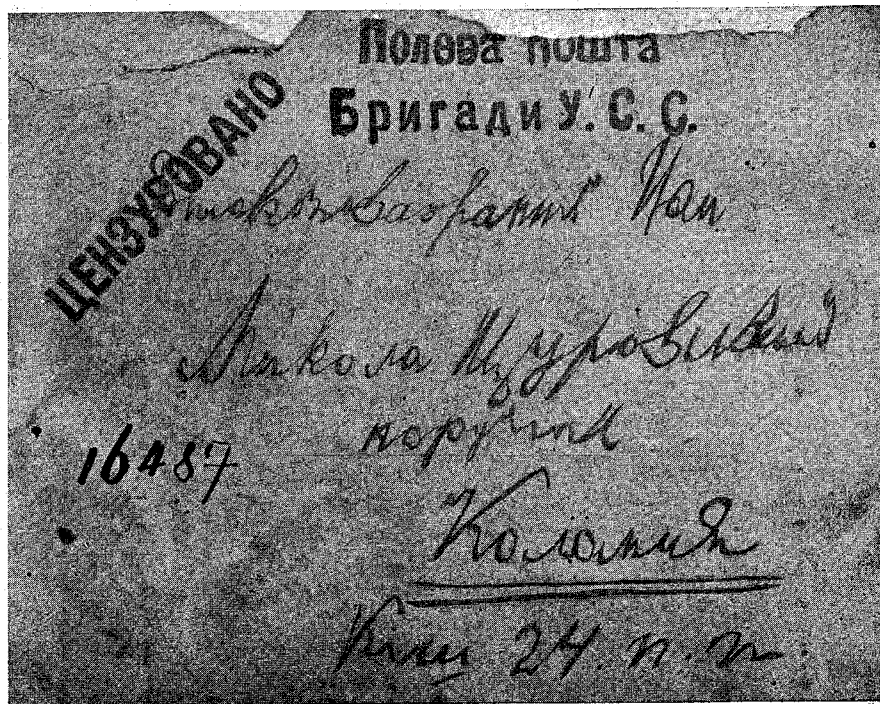 Полева пошта
Бригади У. С. С.
ЦЕНЗУРОВАНО
Пан
Микола Щуровский
поручник
16487
Коломия
Кіш 24. п. п.